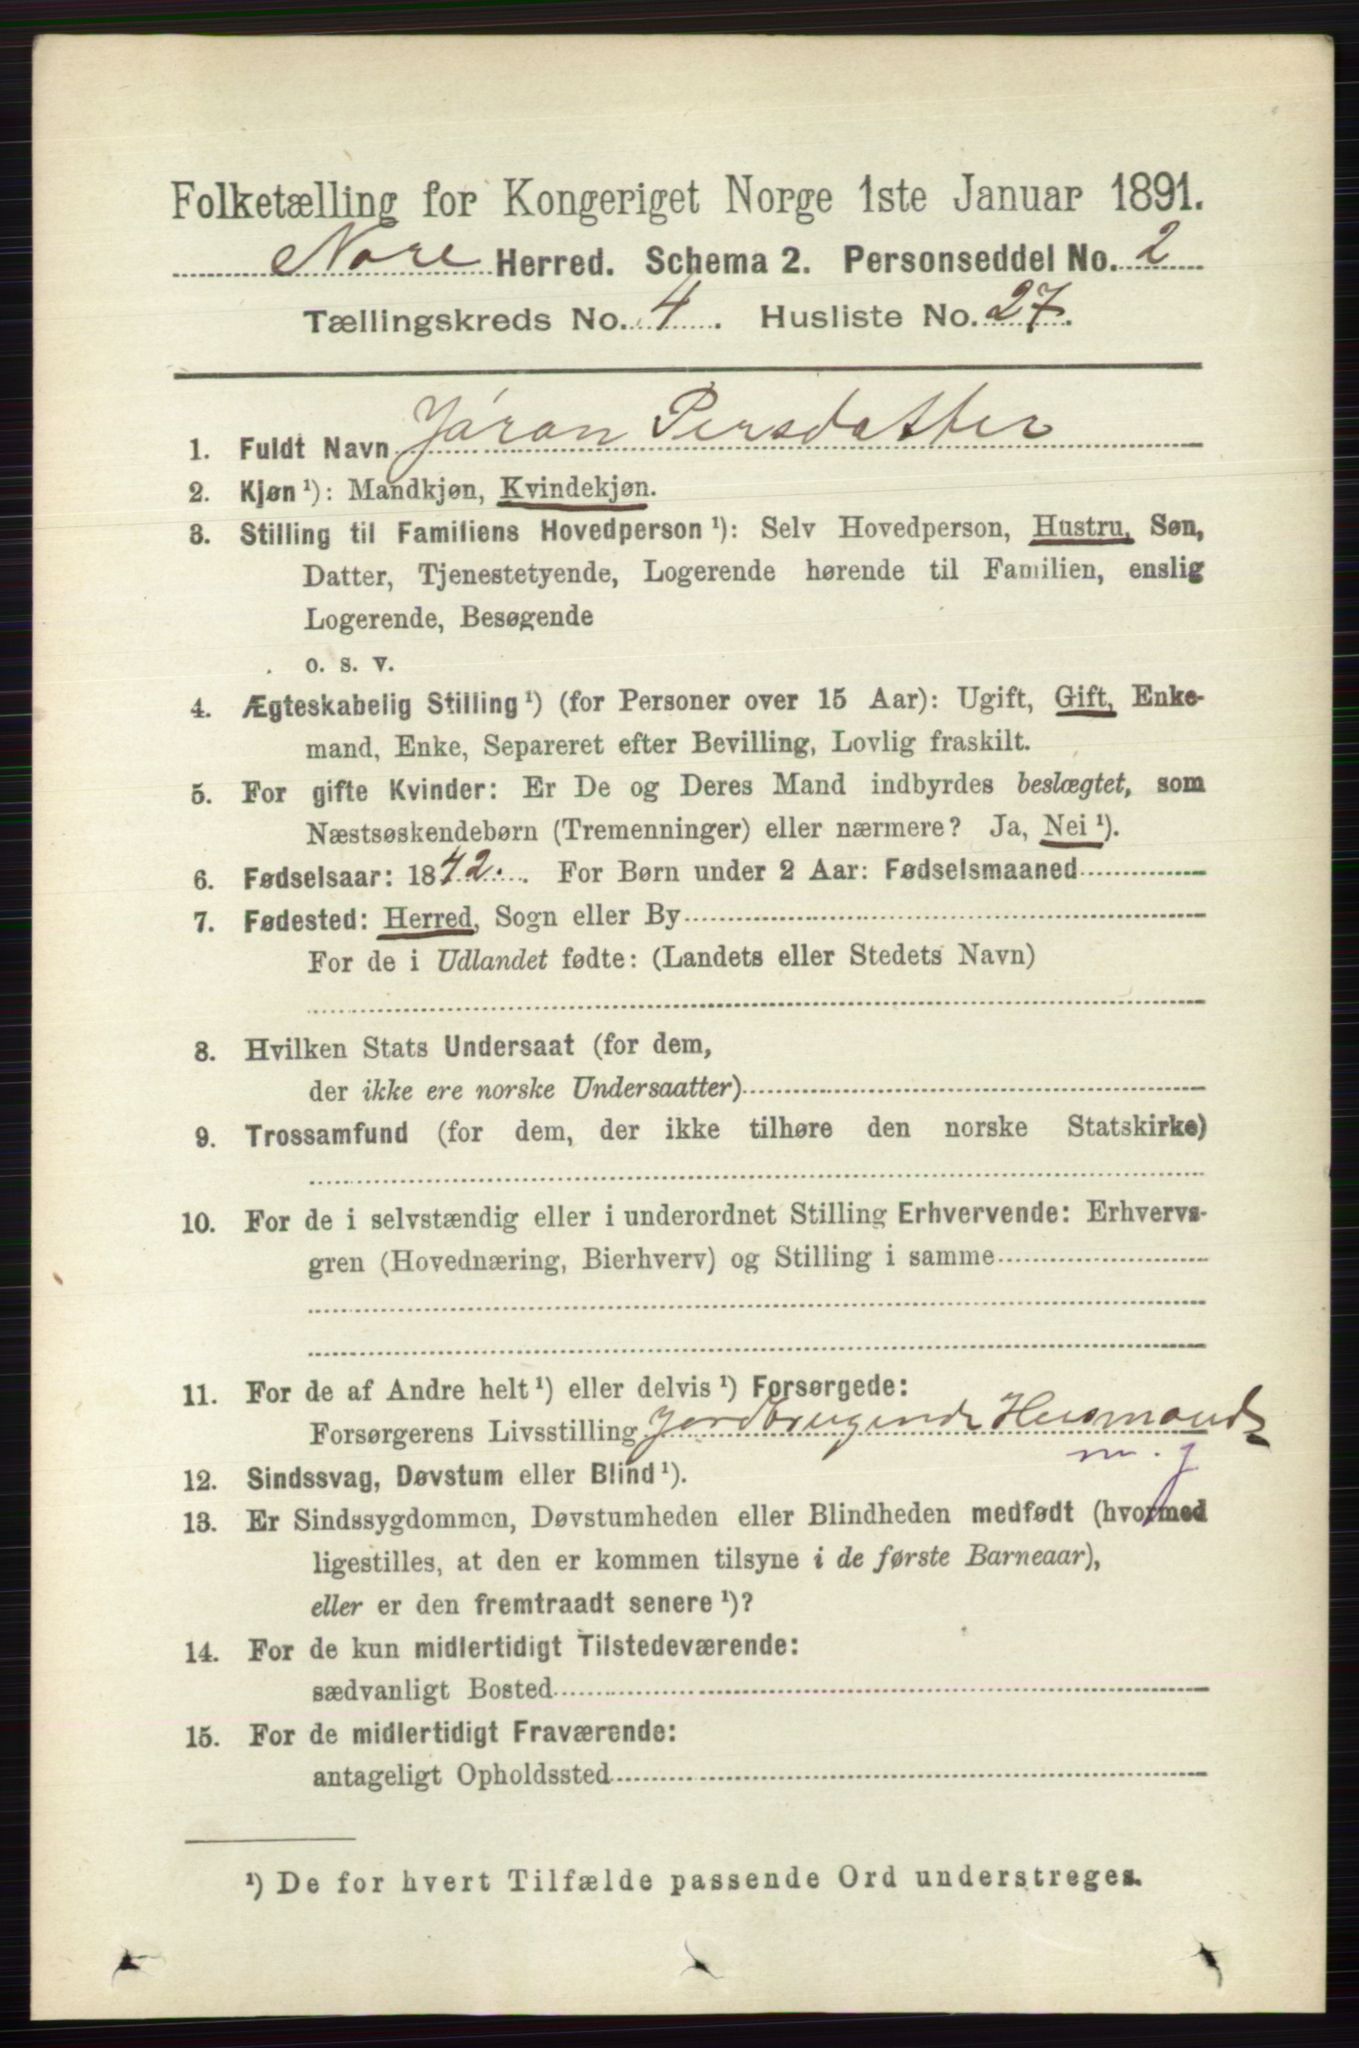 Folketælling for Kongeriget Norge 1ste Januar 1891.
Nore Herred. Schema 2. Personseddel No. 2
Tællingskreds No. 4. Husliste No. 27.
1. Fuldt Navn Jóran Persdatter
2. Kjøn ¹): Mandkjøn, Kvindekjøn.
3. Stilling til Familiens Hovedperson ¹): Selv Hovedperson, Hustru, Søn,
Datter, Tjenestetyende, Logerende hørende til Familien, enslig
Logerende, Besøgende
o. s. v.
4. Ægteskabelig Stilling ¹) (for Personer over 15 Aar): Ugift, Gift, Enke-
mand, Enke, Separeret efter Bevilling, Lovlig fraskilt.
5. For gifte Kvinder: Er De og Deres Mand indbyrdes beslægtet, som
Næstsøskendebørn (Tremenninger) eller nærmere? Ja, Nei ¹).
6. Fødselsaar: 1842. For Børn under 2 Aar: Fødselsmaaned
7. Fødested: Herred, Sogn eller By
For de i Udlandet fødte: (Landets eller Stedets Navn)
8. Hvilken Stats Undersaat (for dem,
der ikke ere norske Undersaatter)
9. Trossamfund (for dem, der ikke tilhøre den norske Statskirke)
10. For de i selvstændig eller i underordnet Stilling Erhvervende: Erhvervs-
gren (Hovednæring, Bierhverv) og Stilling i samme
11. For de af Andre helt ¹) eller delvis ¹) Forsørgede:
Forsørgerens Livsstilling Jordbrugende Husmand
m. j
12. Sindssvag, Døvstum eller Blind ¹).
13. Er Sindssygdommen, Døvstumheden eller Blindheden medfødt (hvormed
ligestilles, at den er kommen tilsyne i de første Barneaar),
eller er den fremtraadt senere ¹)?
14. For de kun midlertidigt Tilstedeværende:
sædvanligt Bosted
15. For de midlertidigt Fraværende:
antageligt Opholdssted
¹) De for hvert Tilfælde passende Ord understreges.